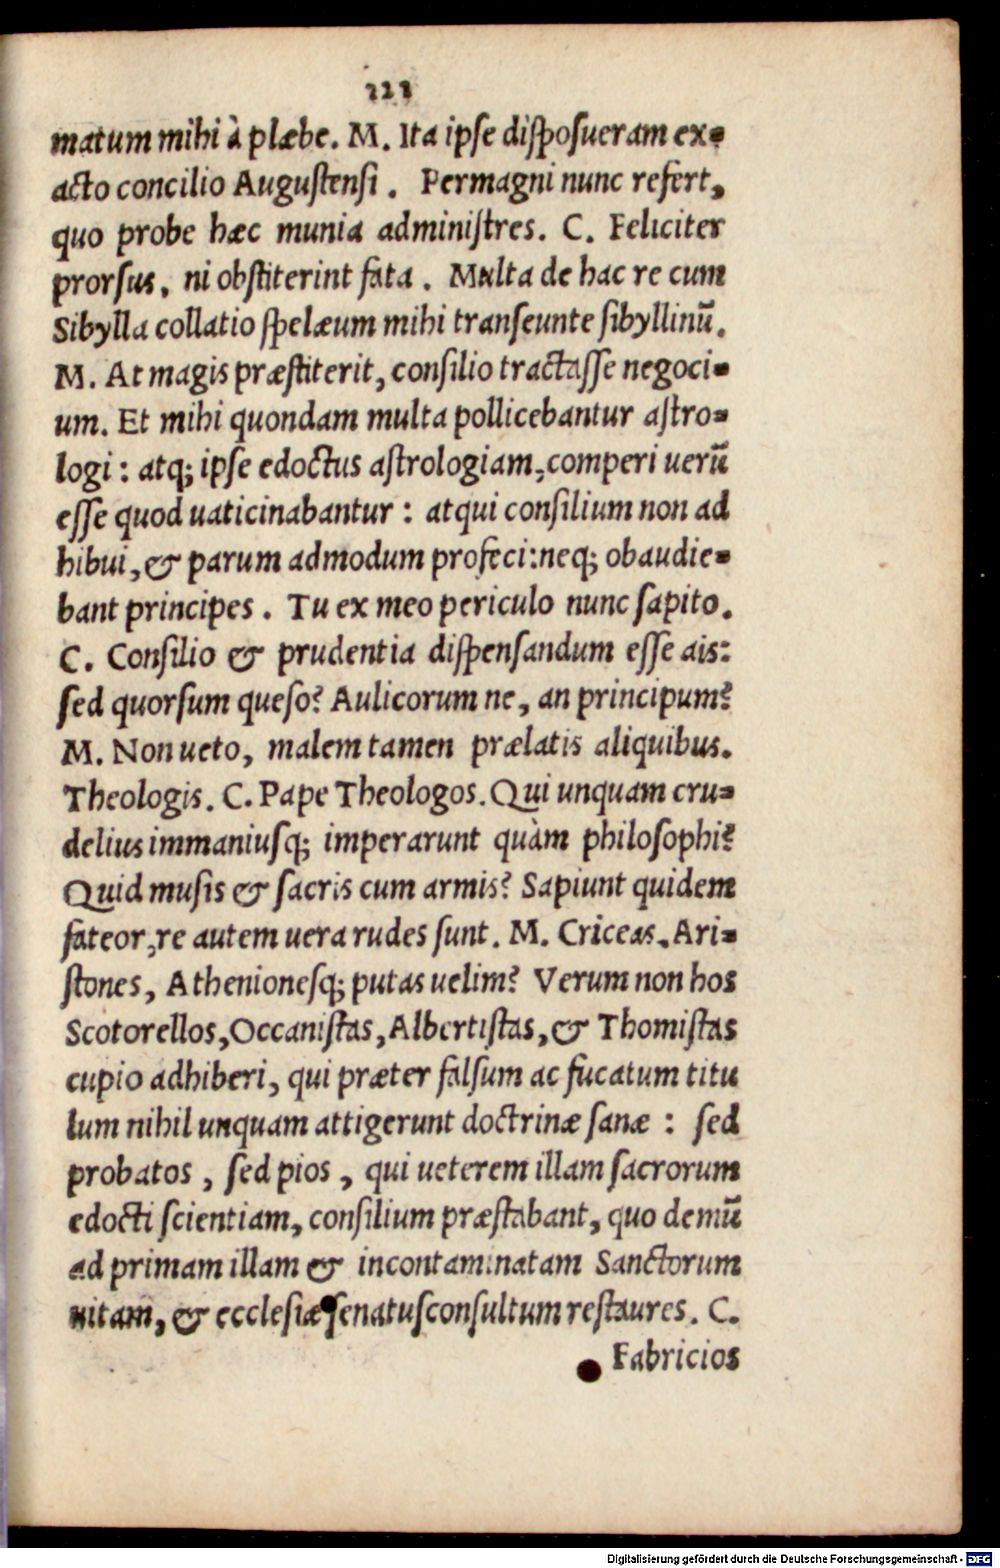 111
matum mihi à plæbe. M. Ita ipse disposueram ex-
acto concilio Augustensi. Permagni nunc refert,
quo probe hæc munia administres. C. Feliciter
prorsus, ni obstiterint fata. Multa de hac re cum
Sibylla collatio spelæum mihi transeunte sibyllinū.
M. At magis præstiterit, consilio tractasse negoci-
um. Et mihi quondam multa pollicebantur astro-
logi: atq; ipse edoctus astrologiam, comperi uerū
esse quod uaticinabantur: atqui consilium non ad
hibui, & parum admodum profeci: neq; obaudie-
bant principes. Tu ex meo periculo nunc sapito.
C. Consilio & prudentia dispensandum esse ais:
sed quorsum queso? Aulicorum ne, an principum?
M. Non ueto, malem tamen prælatis aliquibus.
Theologis. C. Pape Theologos. Qui unquam cru-
delius immaniusq; imperarunt quàm philosophi?
Quid musis & sacris cum armis? Sapiunt quidem
fateor, re autem uera rudes sunt. M. Criceas. Ari-
stones, Athenionesq; putas uelim? Verum non hos
Scotorellos, Occanistas, Albertistas, & Thomistas
cupio adhiberi, qui præter falsum ac fucatum titu
lum nihil unquam attigerunt doctrinæ sanæ: sed
probatos, sed pios, qui ueterem illam sacrorum
edocti scientiam, consilium præstabant, quo demū
ad primam illam & incontaminatam Sanctorum
uitam, & ecclesiæ senatusconsultum restaures. C.
Fabricios
Digitalisierung gefördert durch die Deutsche Forschungsgemeinschaft - DFG